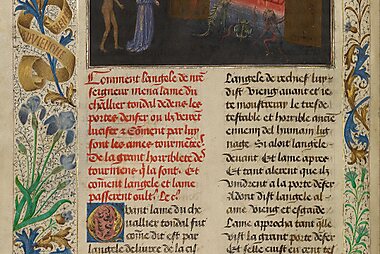 Comment langele de nr̃e
seigneur mena lame du
cheuallier tondal dedens les
portes denfer ou il veirt
lucifer & Comẽt par luy
sont les ames tourmẽtees.
De la grant horriblete des
tourmens q̃ la sont. Et
cõment langele et lame
passerent oult̃.
Quant lame du che
uallier tondal fut
cõme dit est par
langele deliuree de la cis
Langele de rechief luy
dist Vieng auant et ie
te monstreray le tresde
testable et horrible ancie
ennemy de humain lig
nage. Si aloit langele
deuant Et lame apres
Et tant alerent que ilz
vindrent a la porte denfer
Adont dist langele al
ame Vieng et esgarde
Lame approcha tant que
vist la grant porte denfer
Et celle vist en cent tes